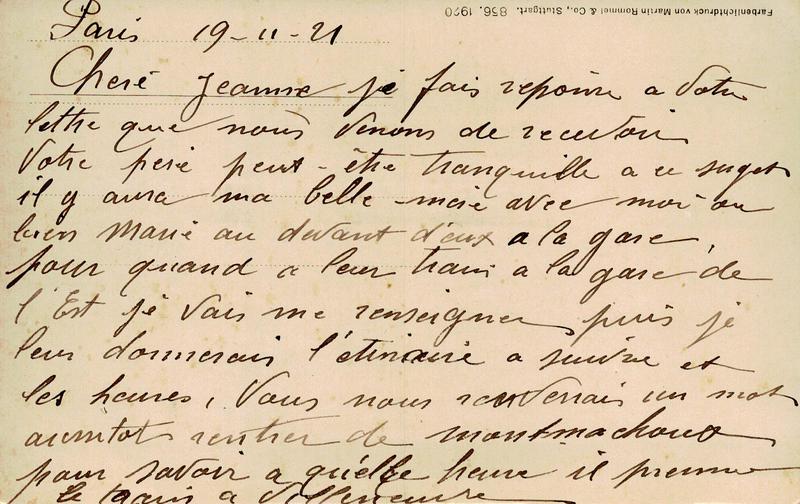 Farbenlichtdruck von Martin Rommel & Co., Stuttgart. 836. 1920
Paris 19-11-21
Cheré Jeanne je fais reponse a Votre
lettre que nous Venons de recevoir
Votre peré peut-être tranquille a ce suget
il y aura ma belle-meré avec moi ou
bien Marié au devant d'eux a la gare,
pour quand a leur train a la gare de
l'Est je Vais me renseigner, puis je
leur donnerais l'étinairé a suivre et
les heures, Vous nous renverrais un mot
aussitot rentrer de montmachoux
pour savoir a quélle heure il prenne
le train a Villeneuve